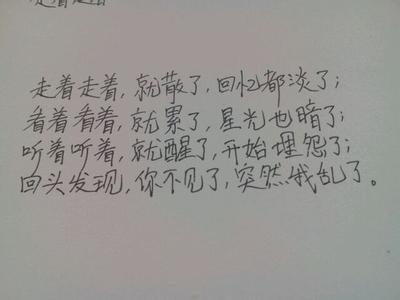 走着走着，就散了，回忆都淡了；
看着看着，就累了，星光也暗了；
听着听着，就醒了，开始埋怨了；
回头发现，你不见了，突然我乱了。